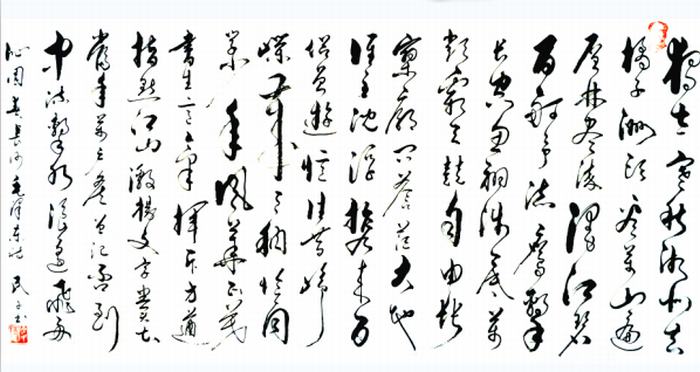 独立寒秋湘江北去
橘子洲头看万山遍
层林尽染漫江碧
百舸争流鹰击
长空鱼翔浅底万
类霜天竞自由怅
寥廓问苍茫大地
谁主沉浮携来百
侣曾游忆往昔峥
嵘岁月稠恰同
学少年风华正茂
书生意气挥斥方遒
指点江山激扬文字粪土
当年万户侯曾记否到
中流击水浪遏飞舟
沁园春长沙毛泽东词 书